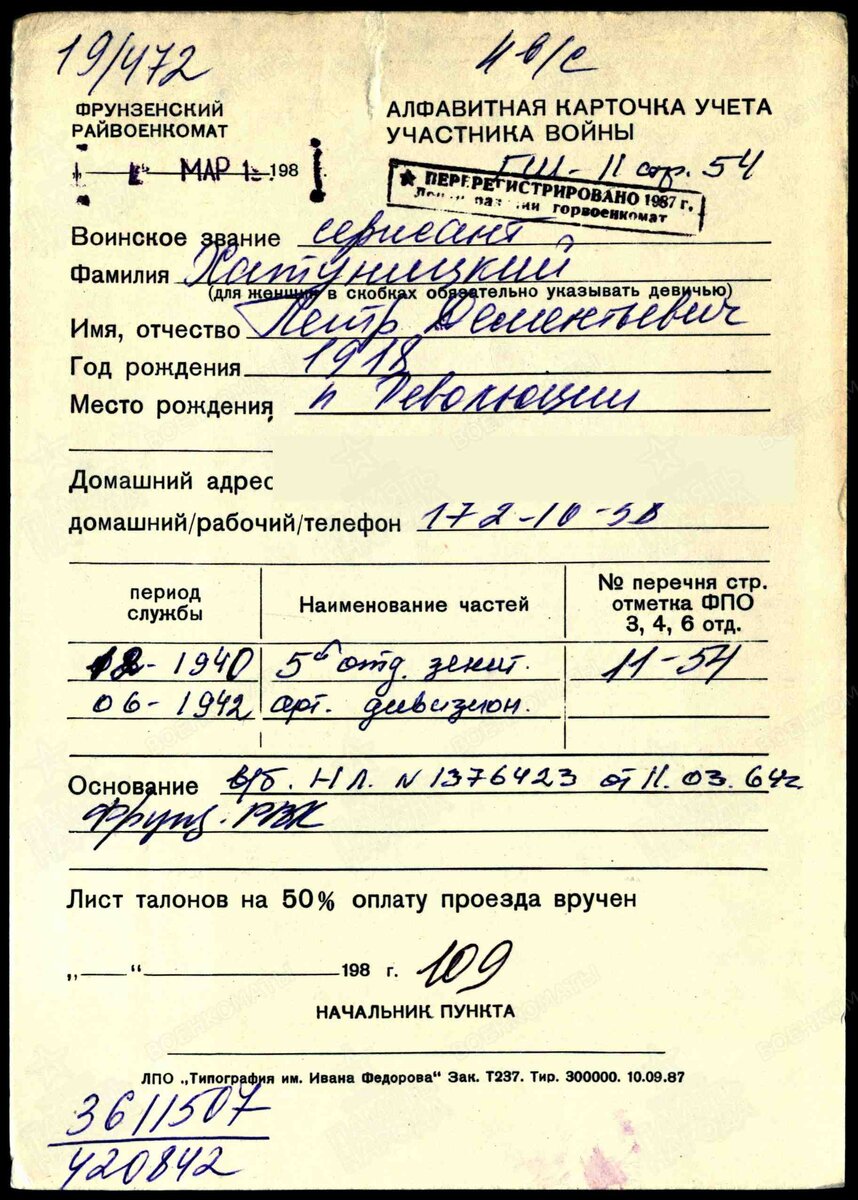 19/472
4 в/с
ФРУНЗЕНСКИЙ
РАЙВОЕНКОМАТ
АЛФАВИТНАЯ КАРТОЧКА УЧЕТА
УЧАСТНИКА ВОЙНЫ
МАР 198
ГШ - II стр. 54
ПЕРЕРЕГИСТРИРОВАНО 1987 г.
горвоенкомат
Воинское звание сержант
Фамилия Хатуницкий
(для женщин в скобках обязательно указывать девичью)
Имя, отчество Петр Дементьевич
Год рождения 1918
Место рождения п Революции
Домашний адрес
домашний/рабочий/телефон 172-10-
период
службы
Наименование частей
№ перечня стр.
отметка ФПО
3, 4, 6 отд.
12 - 1940 5й отд. зенит. 11-54
06 - 1942 арт. дивизион.
Основание в/б. НЛ. N 1376423 от 11.03.64г.
Фрунз. РВК
Лист талонов на 50% оплату проезда вручен
„ “ 198 г. 109
НАЧАЛЬНИК ПУНКТА
ЛПО „Типография им. Ивана Федорова“ Зак. Т237. Тир. 300000. 10.09.87
3611507
420842